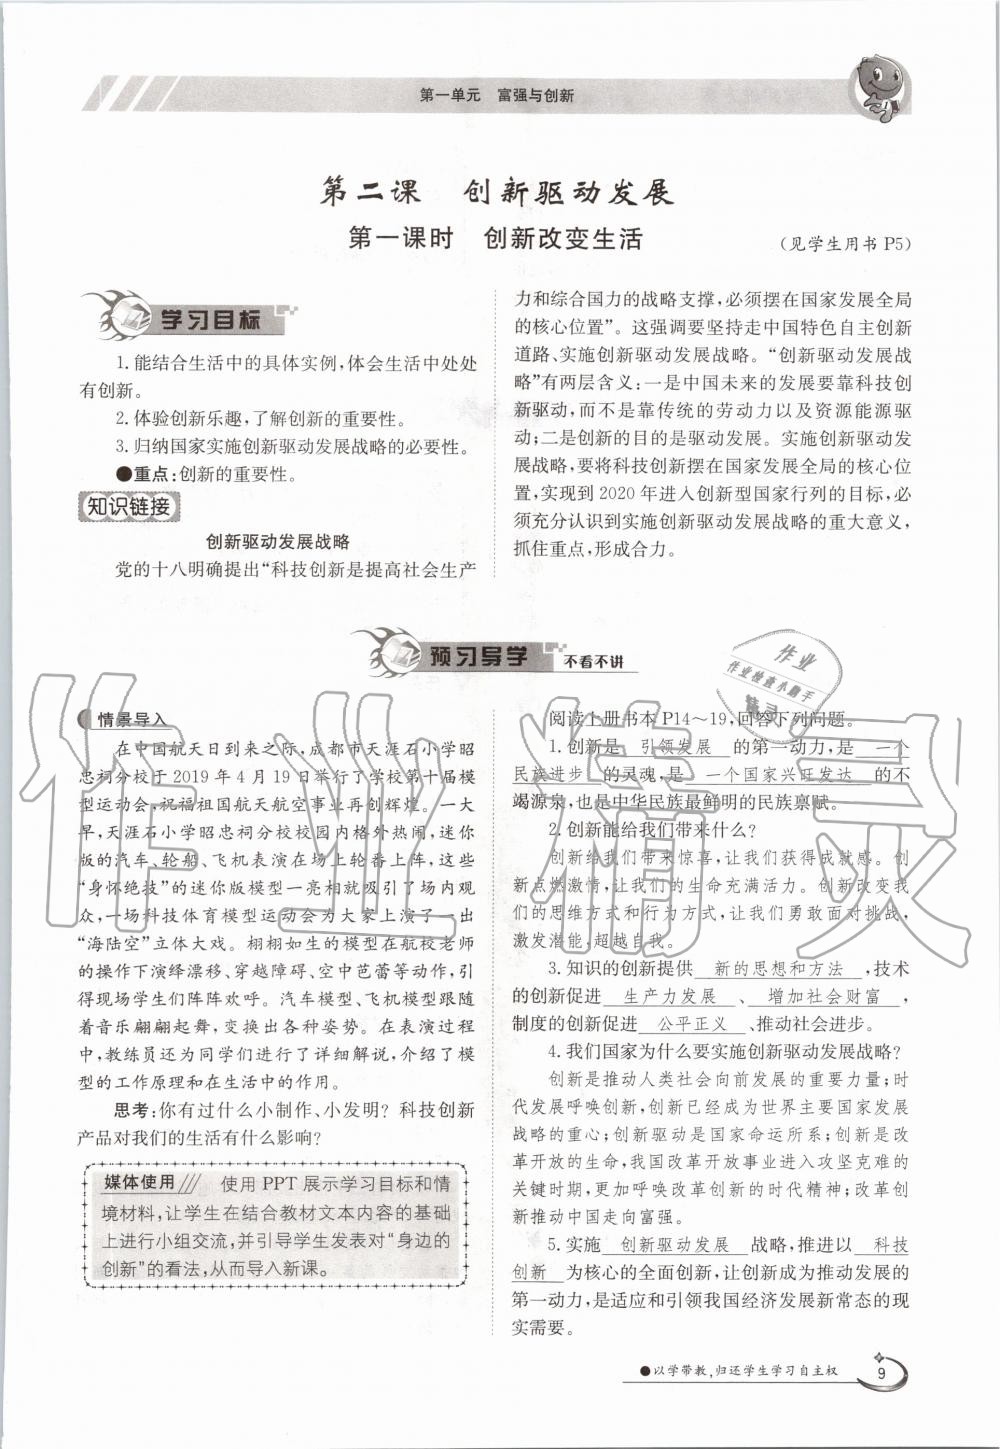 第一单元 富强与创新
第二课 创新驱动发展
第一课时 创新改变生活
(见学生用书 P5)
学习目标
1. 能结合生活中的具体实例,体会生活中处处
有创新。
2. 体验创新乐趣,了解创新的重要性。
3. 归纳国家实施创新驱动发展战略的必要性。
●重点:创新的重要性。
知识链接
创新驱动发展战略
党的十八明确提出“科技创新是提高社会生产
力和综合国力的战略支撑,必须摆在国家发展全局
的核心位置”。这强调要坚持走中国特色自主创新
道路、实施创新驱动发展战略。“创新驱动发展战
略”有两层含义:一是中国未来的发展要靠科技创
新驱动,而不是靠传统的劳动力以及资源能源驱
动;二是创新的目的是驱动发展。实施创新驱动发
展战略,要将科技创新摆在国家发展全局的核心位
置,实现到 2020 年进入创新型国家行列的目标,必
须充分认识到实施创新驱动发展战略的重大意义,
抓住重点,形成合力。
预习导学 不看不讲
情景导入
在中国航天日到来之际,成都市天涯石小学昭
忠祠分校于 2019 年 4 月 19 日举行了学校第十届模
型运动会,祝福祖国航天航空事业再创辉煌。一大
早,天涯石小学昭忠祠分校校园内格外热闹,迷你
版的汽车、轮船、飞机表演在场上轮番上阵,这些
“身怀绝技”的迷你版模型一亮相就吸引了场内观
众,一场科技体育模型运动会为大家上演了一出
“海陆空”立体大戏。栩栩如生的模型在航校老师
的操作下演绎漂移、穿越障碍、空中芭蕾等动作,引
得现场学生们阵阵欢呼。汽车模型、飞机模型跟随
着音乐翩翩起舞,变换出各种姿势。在表演过程
中,教练员还为同学们进行了详细解说,介绍了模
型的工作原理和在生活中的作用。
思考:你有过什么小制作、小发明?科技创新
产品对我们的生活有什么影响?
媒体使用 使用 PPT 展示学习目标和情
境材料,让学生在结合教材文本内容的基础
上进行小组交流,并引导学生发表对“身边的
创新”的看法,从而导入新课。
阅读上册书本 P14～19,回答下列问题。
1. 创新是 引领发展 的第一动力,是 一个
民族进步 的灵魂,是 一个国家兴旺发达 的不
竭源泉,也是中华民族最鲜明的民族禀赋。
2. 创新能给我们带来什么?
创新给我们带来惊喜,让我们获得成就感。创
新点燃激情,让我们的生命充满活力。创新改变我
们的思维方式和行为方式,让我们勇敢面对挑战,
激发潜能,超越自我。
3. 知识的创新提供 新的思想和方法 ,技术
的创新促进 生产力发展 、 增加社会财富 ,
制度的创新促进 公平正义 、推动社会进步。
4. 我们国家为什么要实施创新驱动发展战略?
创新是推动人类社会向前发展的重要力量;时
代发展呼唤创新,创新已经成为世界主要国家发展
战略的重心;创新驱动是国家命运所系;创新是改
革开放的生命,我国改革开放事业进入攻坚克难的
关键时期,更加呼唤改革创新的时代精神;改革创
新推动中国走向富强。
5. 实施 创新驱动发展 战略,推进以 科技
创新 为核心的全面创新,让创新成为推动发展的
第一动力,是适应和引领我国经济发展新常态的现
实需要。
作业
作业检查小助手
精灵
作业精灵
●以学带教,归还学生学习自主权
9